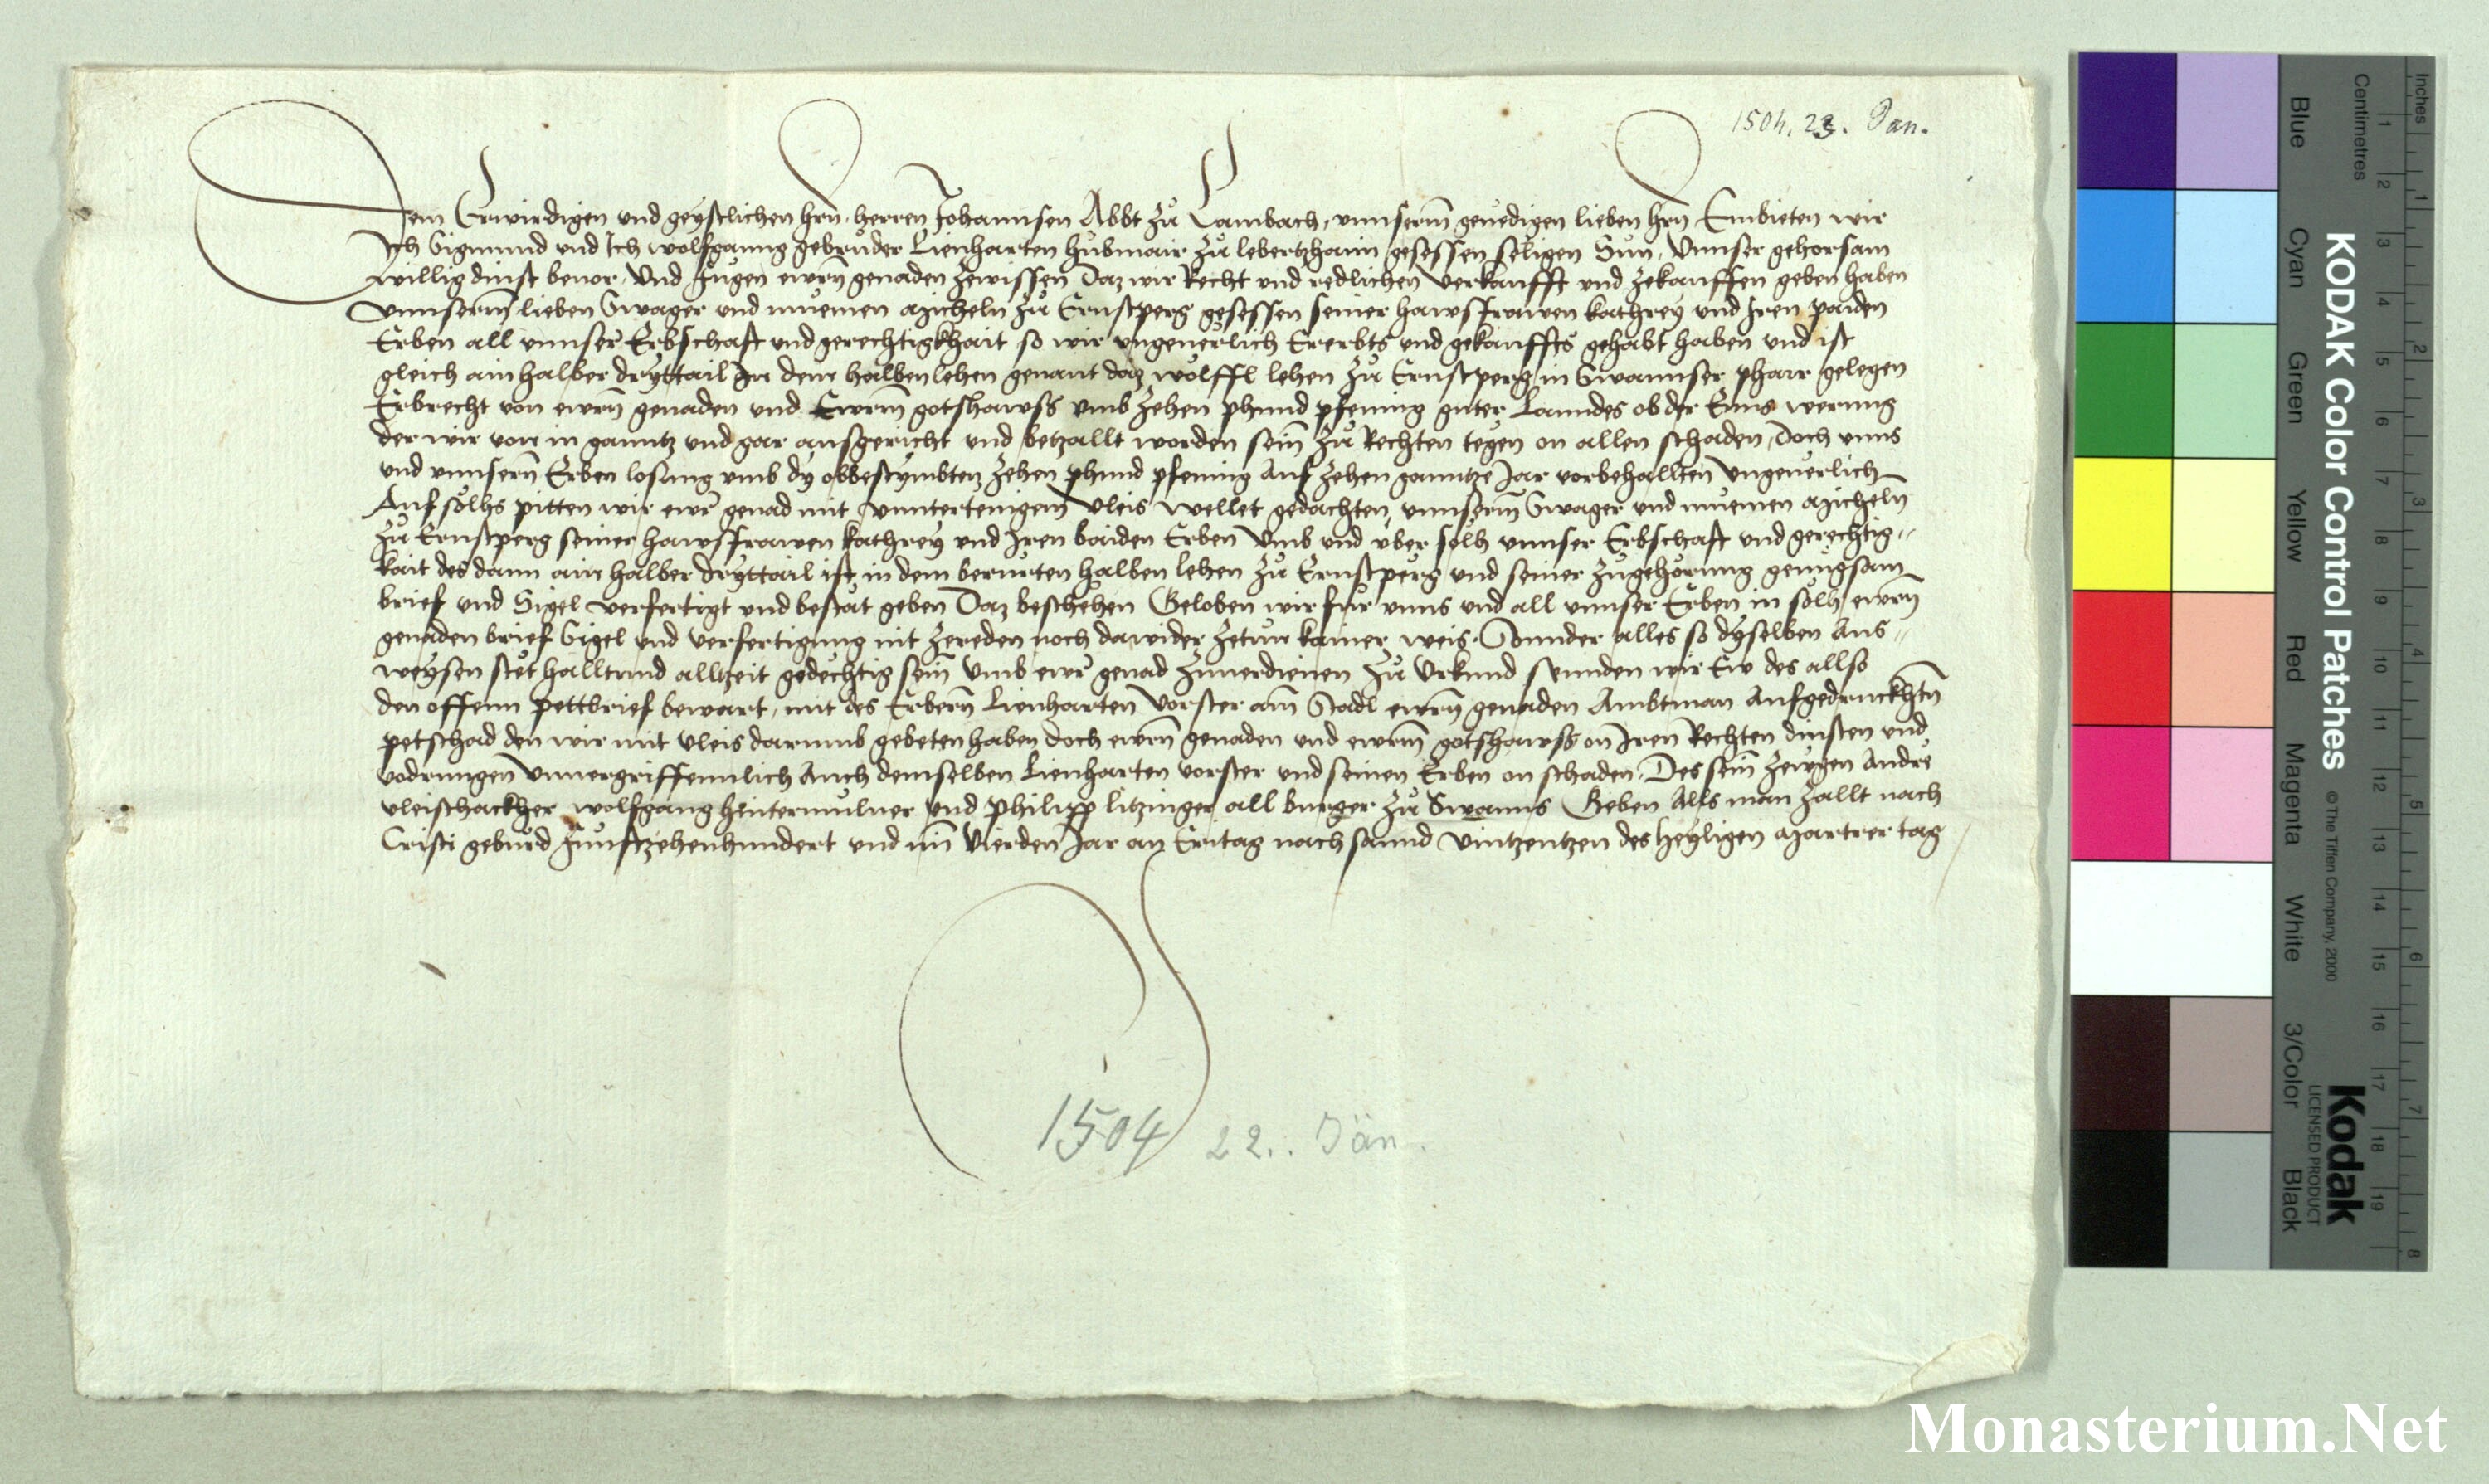 1504, 23. Jan.
Dem Erwirdigen und geystlichen hrn. herren Johannsen Abbt zů Lambach, unnserm genedigen lieben hrn Embieten wir
Ich Sigmund und Ich wolfganng gebrůder Lienharten hůbmair zů lebertzhaim gesessen seligen Sün, Unnser gehorsam
willig dinst bevor, Und fuegen ewrn genaden zewissen Daz wir Recht und redlichen verkaufft und zekauffen geben haben
unnserm lieben Swager und muemen Micheln zů Ernstperg gesessen seiner hawsfrawen kathrey und Iren paiden
Erben all unnser Erbschaft und gerechtigkhait so wir ungeverlich Ererbts und gekauffts gehabt haben und ist
gleich ain halber dryttail In dem halben lehen genant daz wölffl lehen zů Ernstperg in Swannser pharr gelegen
Erbrecht von ewrn genaden und Ewrm gotshawss umb zehen phund pfening guter Lanndes ob der Enns werung
der wir von in ganntz und gar ausgericht und betzallt worden sein zů Rechten tegen on allen schaden, Doch unns
und unnsern Erben losung umb dy obbestymbten zehen phund pfening Auf zehen ganntze Jar vorbehallten Ungeverlich
Auf sölhs pitten wir ewr genad mit unntertenigem Vleis Wellet gedachten unnserm Swager und muemen Micheln
zů Ernstperg seiner hawsfrawen kathrey und Iren baiden Erben Umb und über sölh unnser Erbschaft und gerechtig-
kait des dann ain halber dryttail ist in dem berürten halben lehen zů Ernstperg und seiner zůgehörung genůgsam
brief und Sigel verfertigt und bestät geben Daz beschehen Geloben wir für unns und all unnser Erben in sölh ewrn
genaden brief Sigel und verfertigung nit zereden noch dawider zetun kainer weis. Sonnder alles so dyselben Aus-
weysen stet hallt und alltzeit gedechtig sein Umb ewr genad zuverdienen Zů Urkund sennden wir Ew des allso
den offenn pettbrief bewart, mit des Erbern Lienharten Vorster am Stadl ewrn genaden Ambtman Aufgedruckhtn
petschad den wir mit Vleis darumb gebeten haben doch ewrn genaden und ewrm gotshawss on Iren Rechten dinsten und
vodrungen Unvergriffennlich Auch demselben Lienharten vorster und seinen Erben on schaden, Des sein zewgen Andre
vleischackher wolfgang hintermülner und philipp litzinger all burger zů Swanns Geben Alls man zallt nach
Cristi geburd Fünftzehenhundert und im Vierden Jar an Eritag nach sannd Vintzentzen des heyligen Martrer tag
1504 22. Jän.
KODAK Color Control Patches
© The Tiffen Company, 2000
Kodak
LICENSED PRODUCT
Inches 1 2 3 4 5 6 7 8
Centimetres 1 2 3 4 5 6 7 8 9 10 11 12 13 14 15 16 17 18 19
Blue Cyan Green Yellow Red Magenta White 3/Color Black
Monasterium.Net